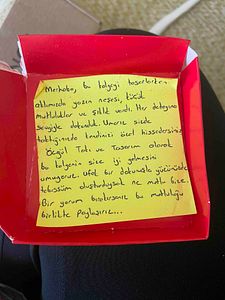 Merhaba, bu kolyeyi tasarlarken
aklımızda yazın neşesi, küçük
mutluluklar ve şıklık vardı. Her detayına
sevgiyle dokunduk. Umarız sizde
taktığınızda kendinizi özel hissedersiniz.
Özgül Takı ve Tasarım olarak
bu kolyenin size iyi gelmesini
umuyoruz. Ufak bir dokunuşla yüzünüzde
tebessüm oluşturduysak ne mutlu bize.
Bir yorum bırakırsanız bu mutluluğu
birlikte paylaşırız...